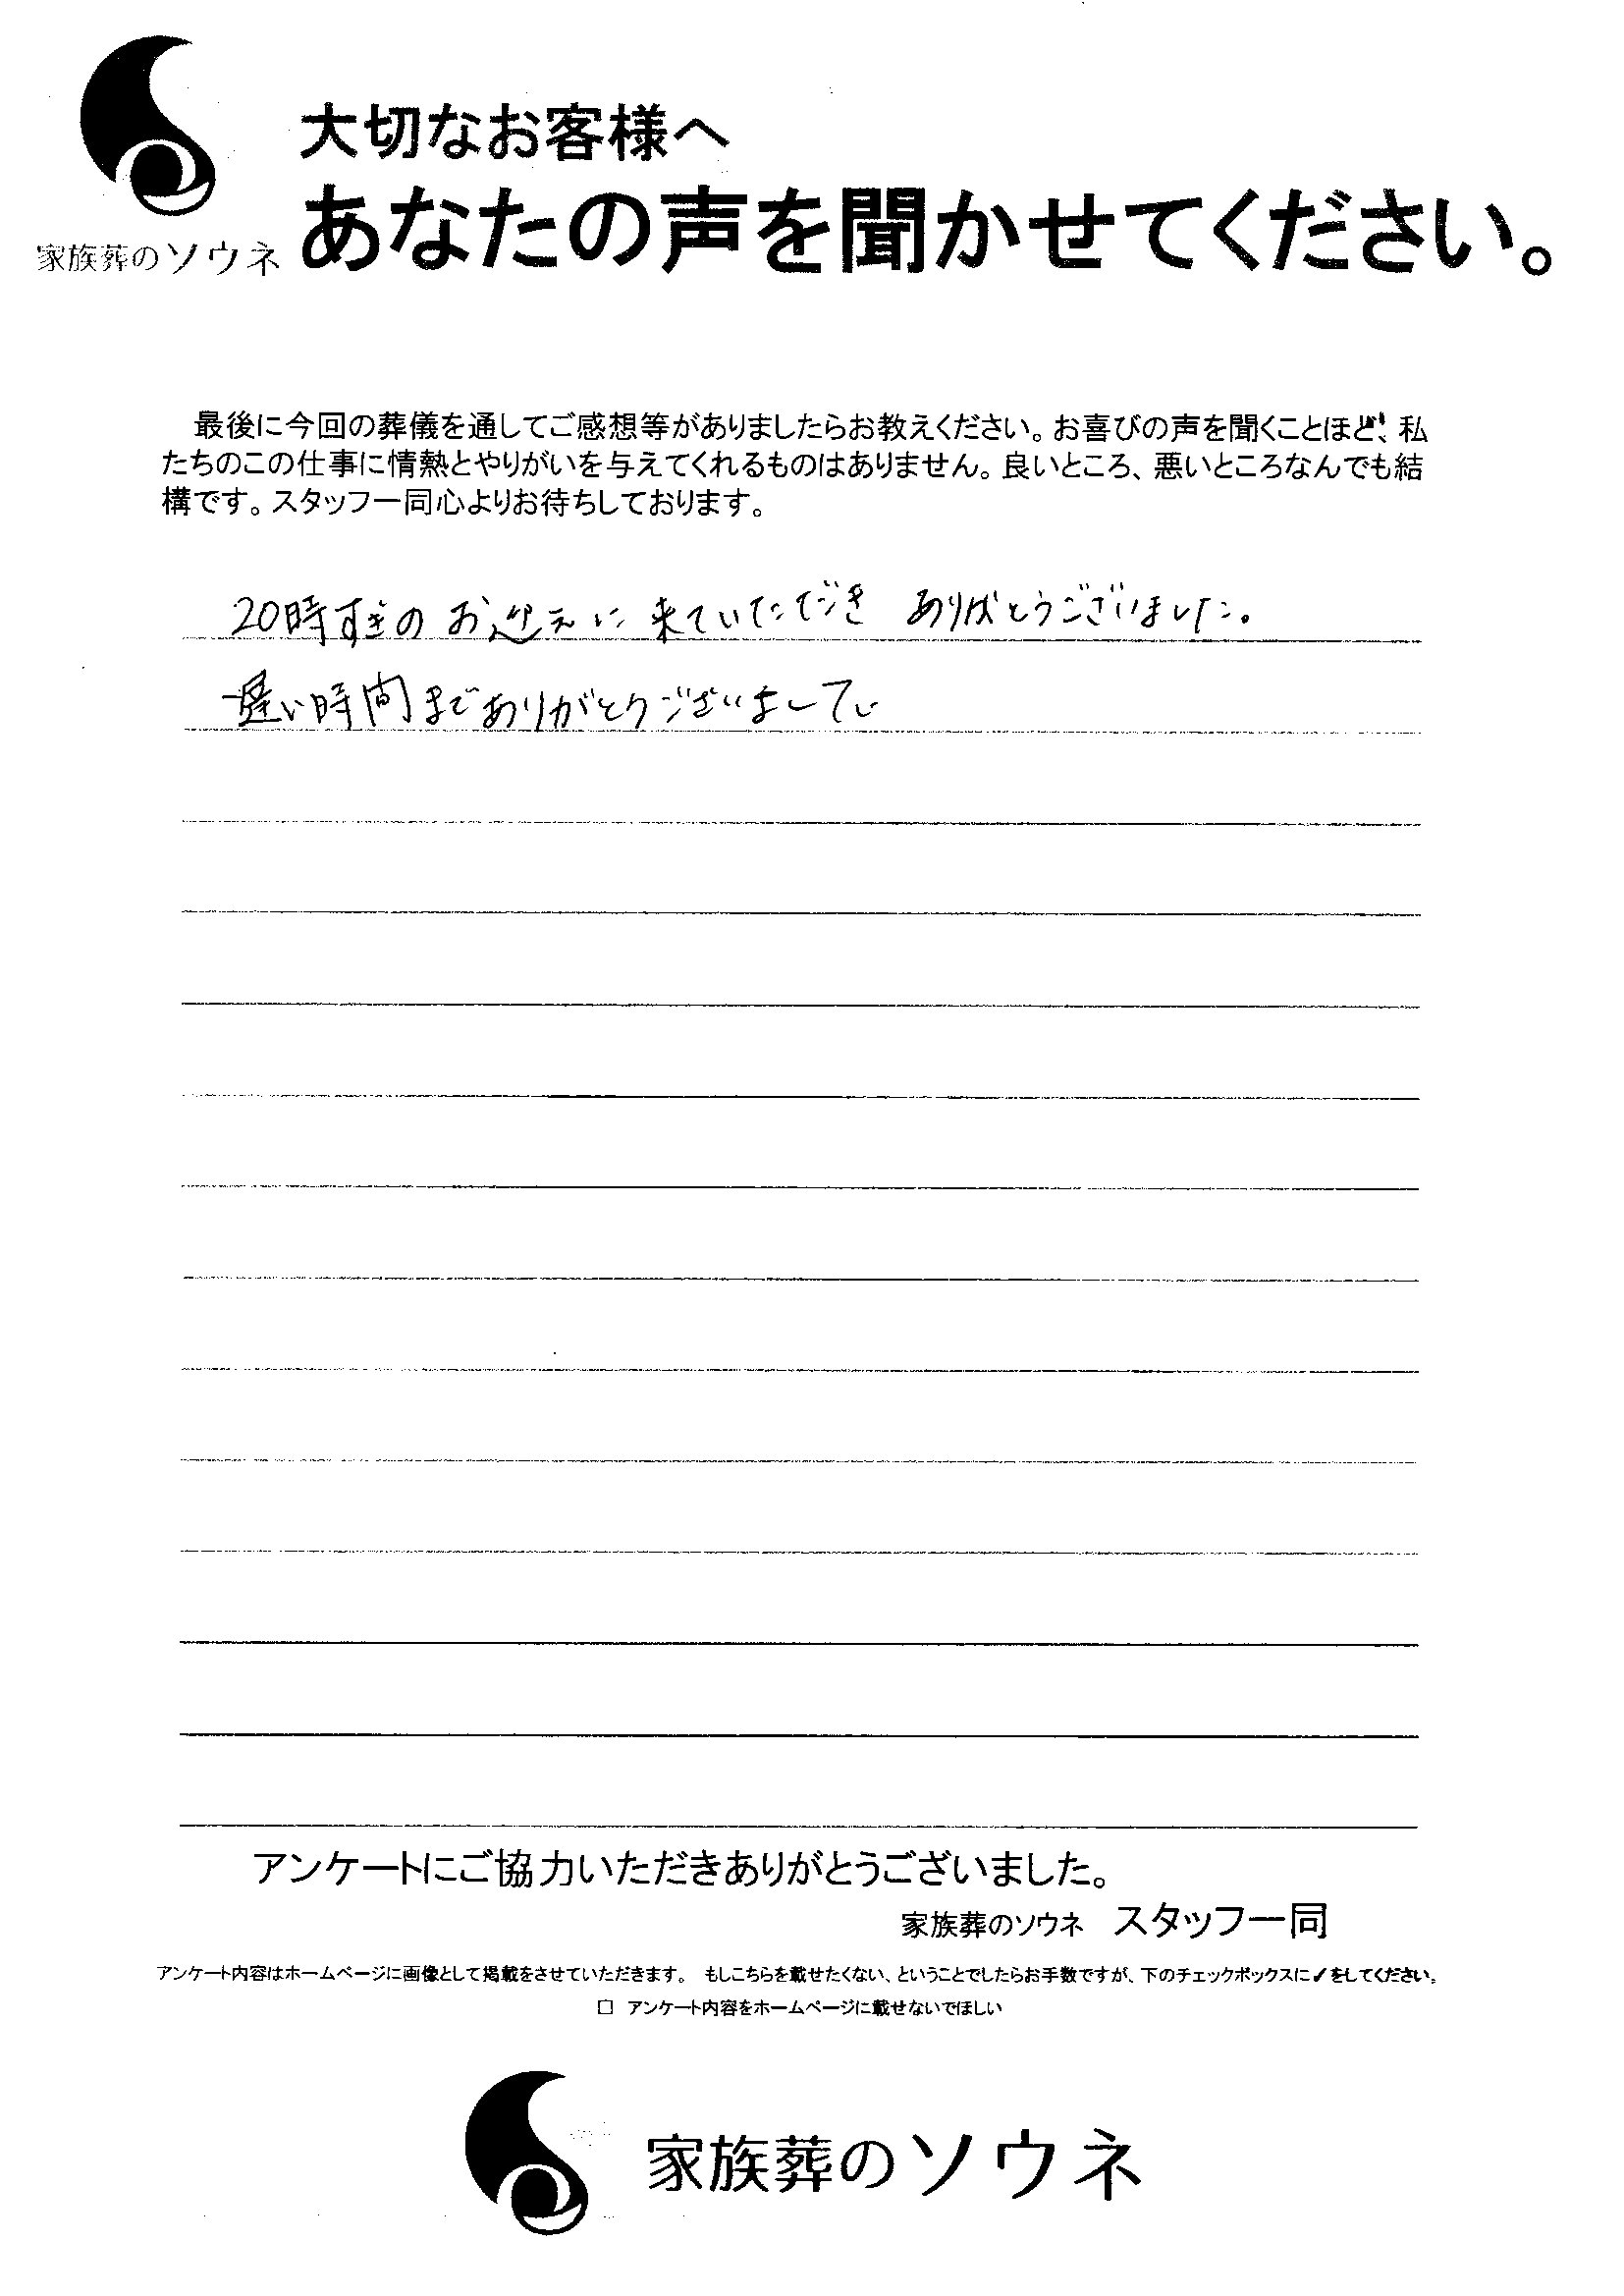 大切なお客様へ
あなたの声を聞かせてください。
家族葬のソウネ
最後に今回の葬儀を通してご感想等がありましたらお教えください。お喜びの声を聞くことほど、私
たちのこの仕事に情熱とやりがいを与えてくれるものはありません。良いところ、悪いところなんでも結
構です。スタッフ一同心よりお待ちしております。
20時すぎのお迎えに来ていただき ありがとうございました。
遅い時間までありがとうございまし
アンケートにご協力いただきありがとうございました。
家族葬のソウネ スタッフ一同
アンケート内容はホームページに画像として掲載をさせていただきます。 もしこちらを載せたくない、ということでしたらお手数ですが、下のチェックボックスに✓をしてください。
□ アンケート内容をホームページに載せないでほしい
家族葬のソウネ